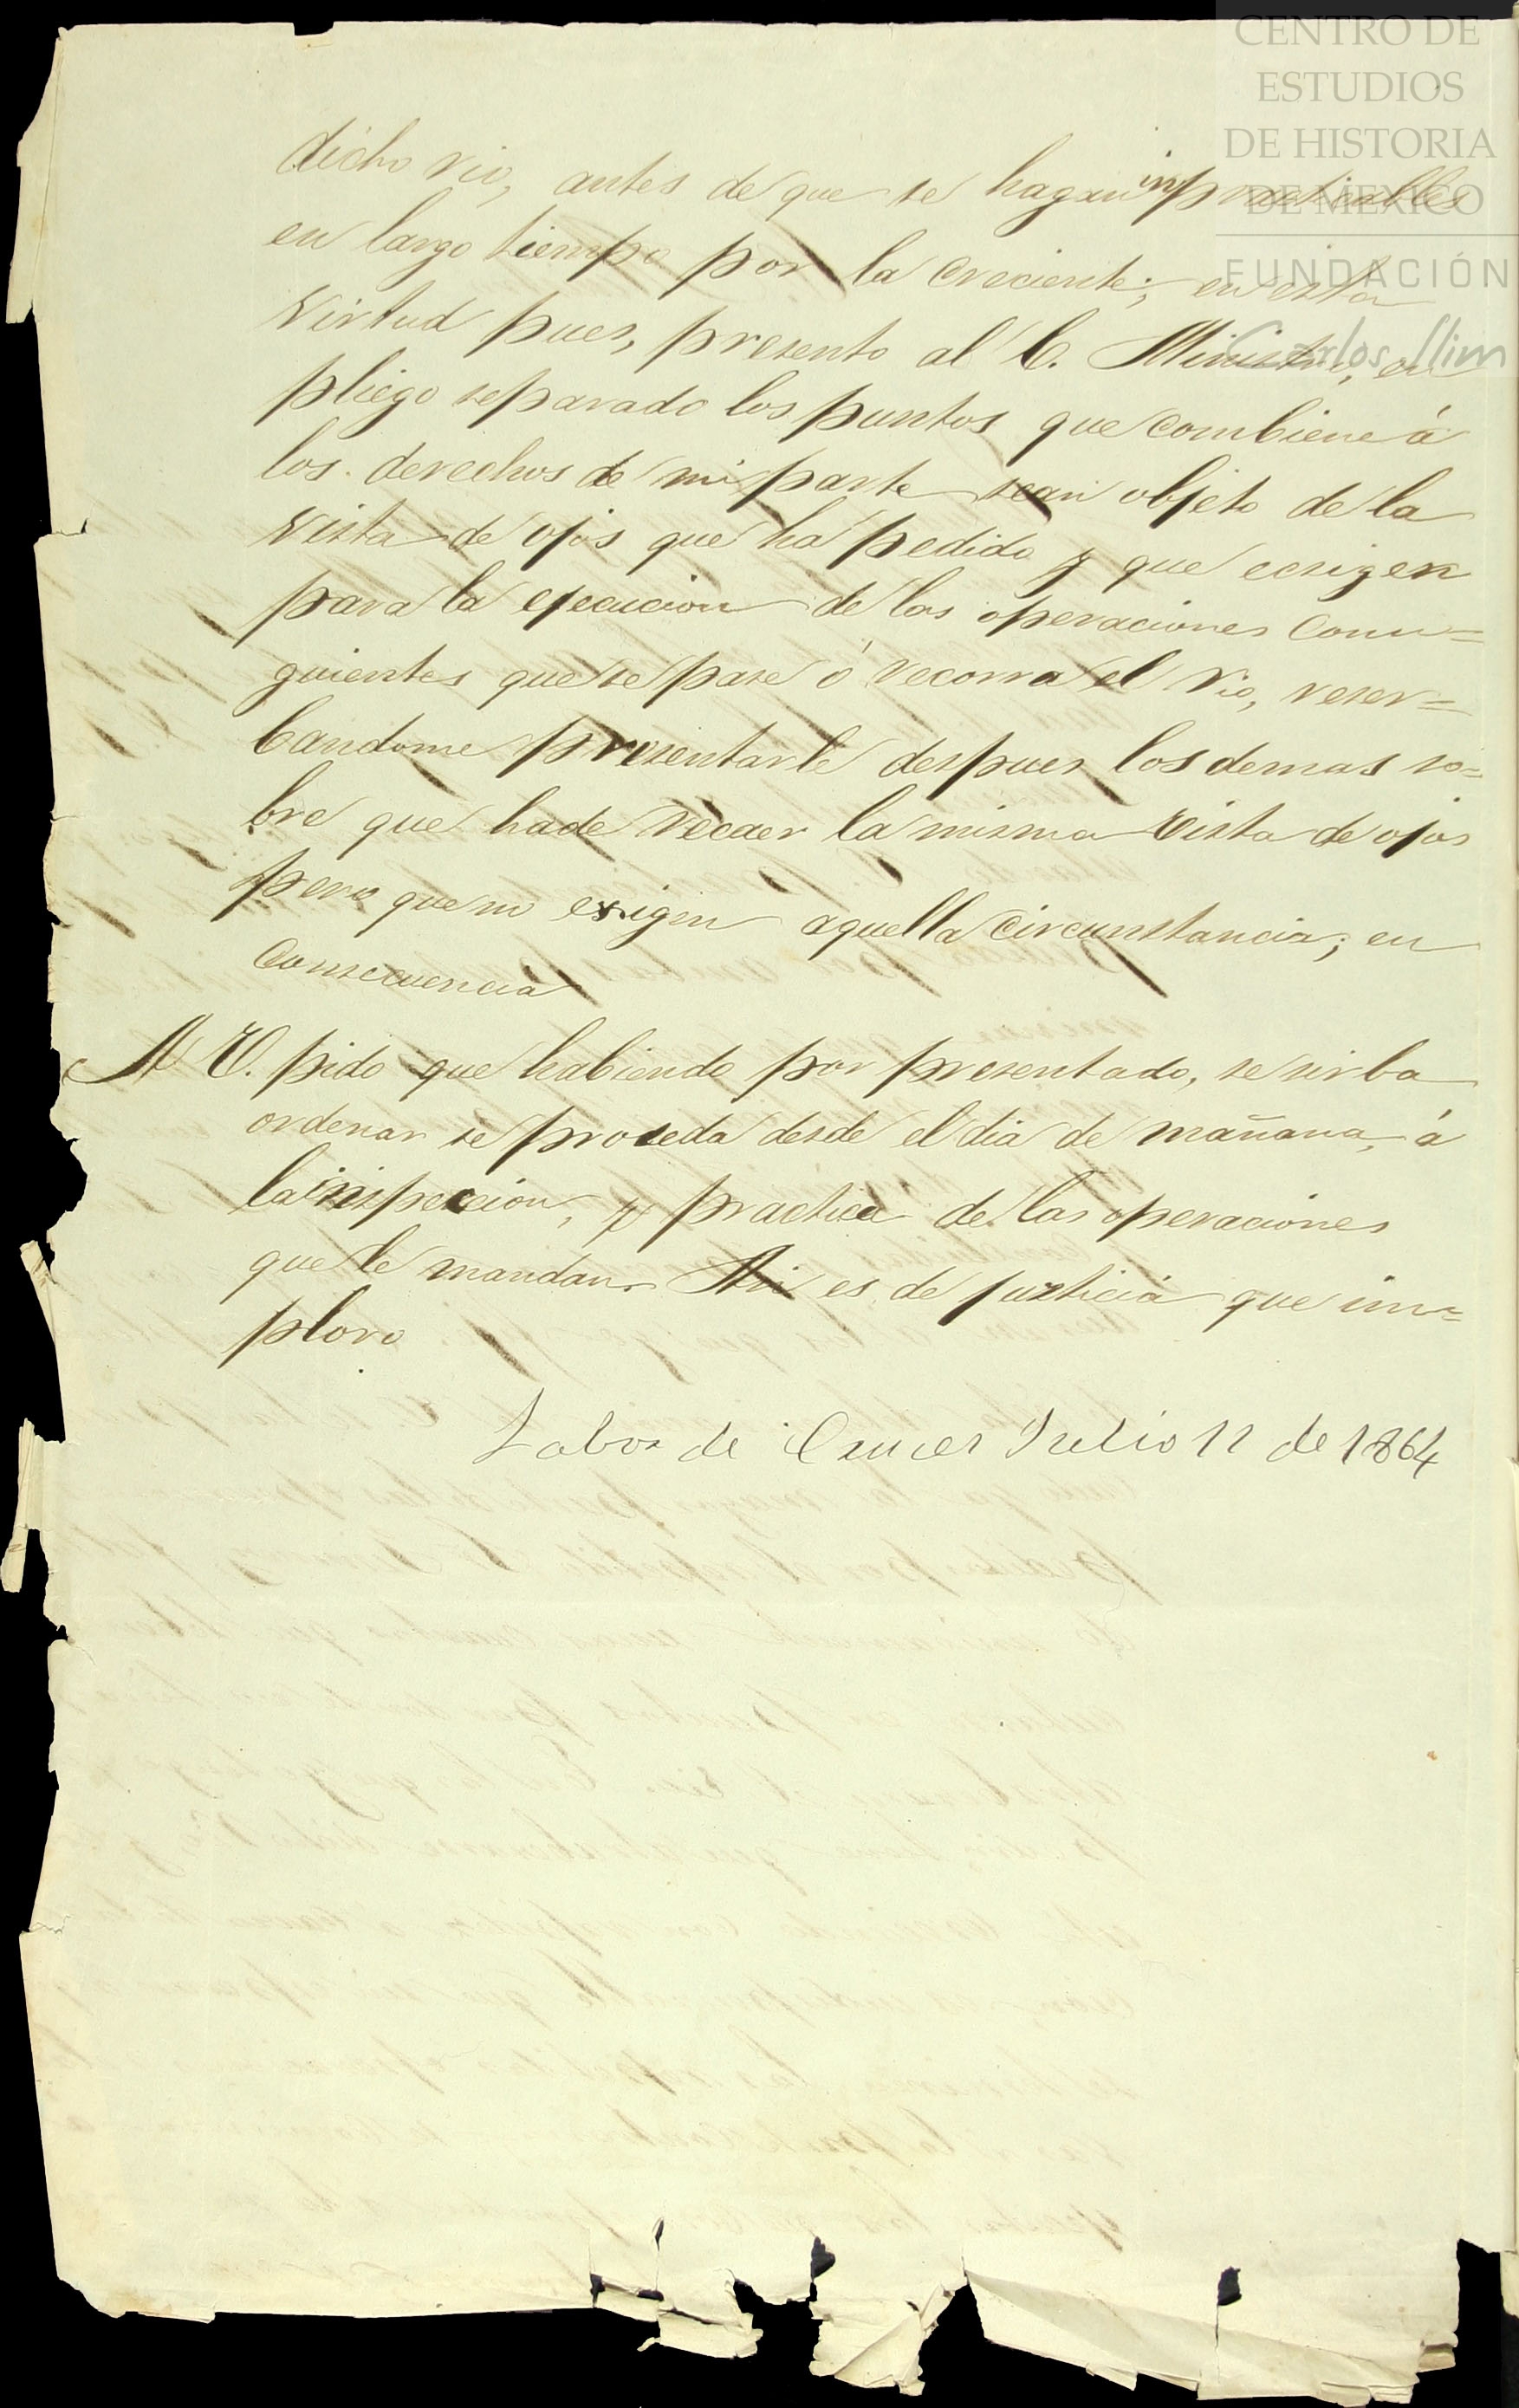 CENTRO DE
ESTUDIOS
DE HISTORIA
DE MEXICO
FUNDACIÓN
Carlos Slim
dicho rio, antes de que se hagan impracticables
en largo tiempo por la creciente; en esta
virtud pues, presento al C. Ministro, en
pliego separado los puntos que combiene á
los derechos de mi parte sean objeto de la
vista de ojos que ha pedido y que ecsigen
para la ejecucion de las operaciones consi=
guientes que se pase ó recorra el rio, reser=
bandome presentarle despues los demas so=
bre que hade recaer la misma vista de ojos
pero que no exigen aquella circunstancia; en
consecuencia
A V. pido que habiendo por presentado, se sirba
ordenar se proseda desde el dia de mañana, á
la inspeccion, y practica de las operaciones
que le mandan. Asi es de justicia que im=
ploro
Labor de Julio 11 de 1864